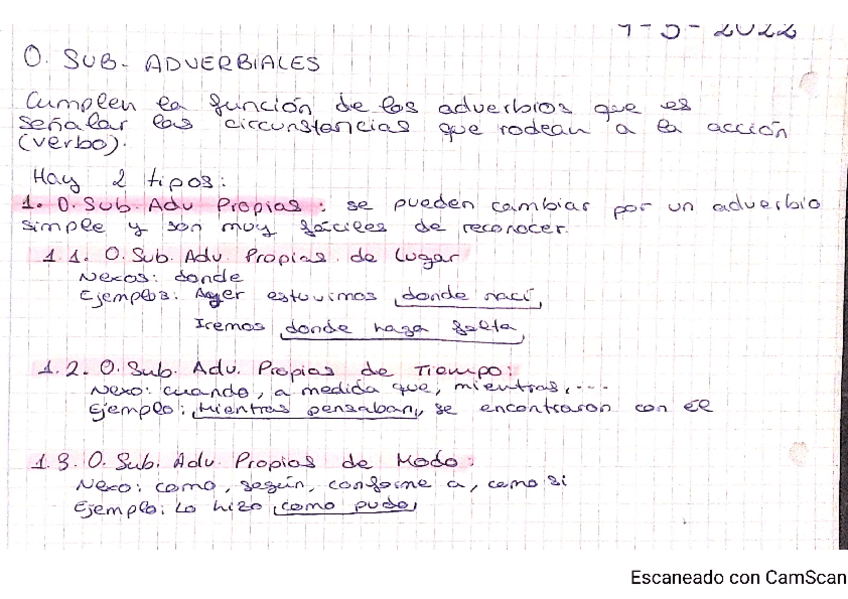 9-5-2022
O. SUB. ADVERBIALES
Cumplen la función de los adverbios que es
señalar las circunstancias que rodean a la acción
(verbo).
Hay 2 tipos:
1. O. Sub. Adv Propias: se pueden cambiar por un adverbio
simple y son muy fáciles de reconocer.
1.1. O. Sub. Adv. Propias de Lugar
Nexos: donde
Ejemplos: Ayer estuvimos donde nací,
Iremos donde haga falta,
1.2. O. Sub. Adv. Propias de Tiempo:
Nexo: cuando, a medida que, mientras,...
Ejemplo: Mientras pensaban, se encontraron con él
1.3. O. Sub. Adv. Propias de Modo:
Nexo: como, según, conforme a, como si
Ejemplo: Lo hizo como pudo,
Escaneado con CamScan